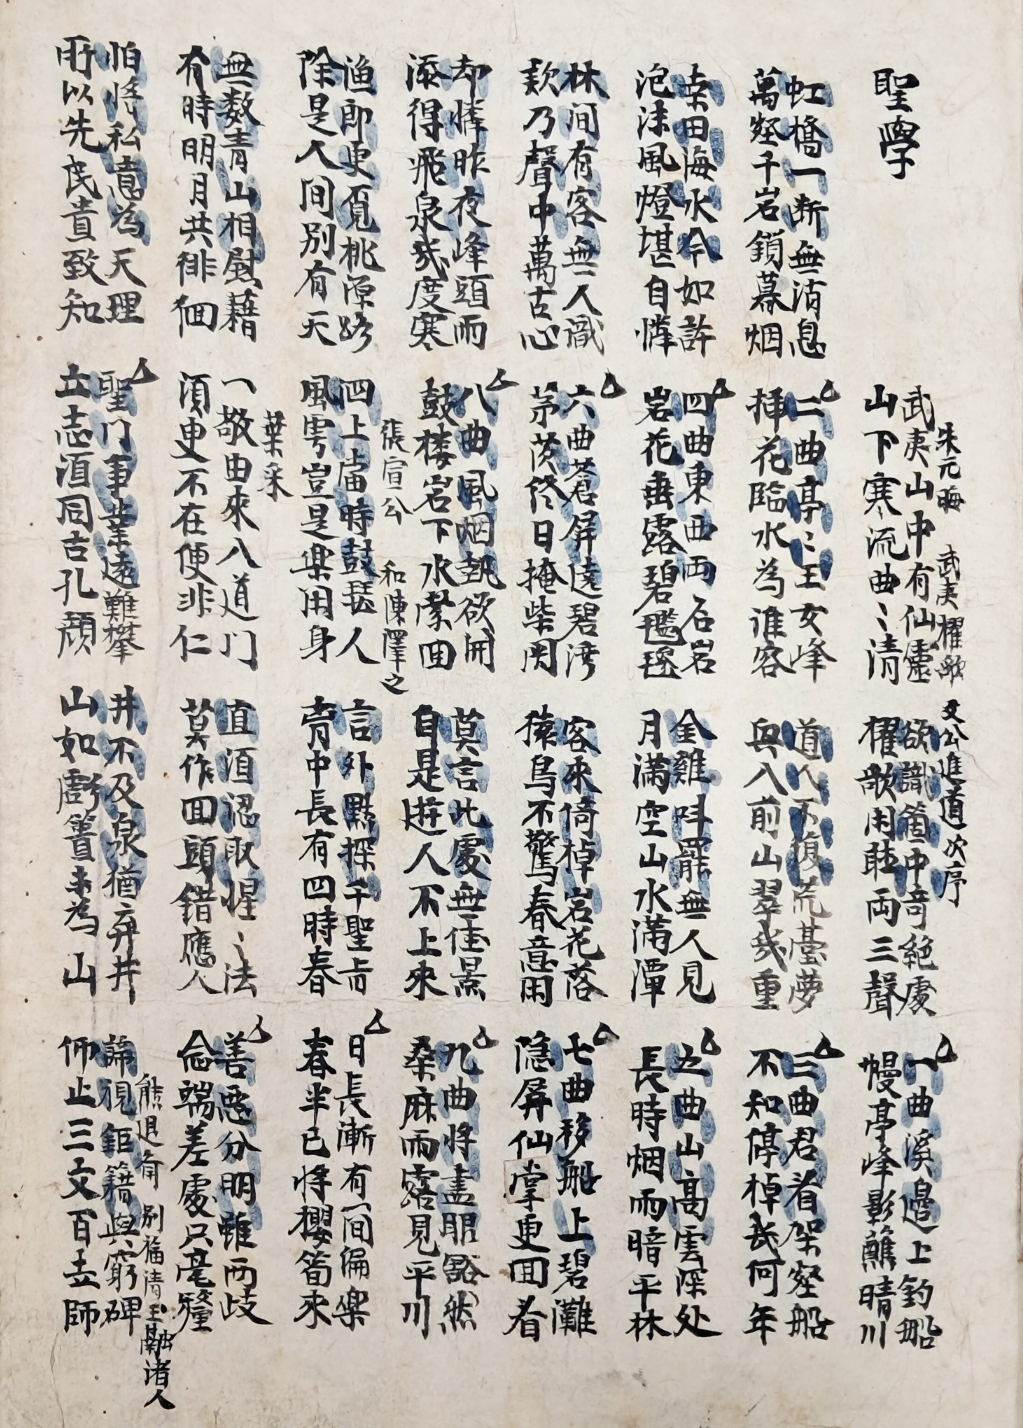 聖學
朱元晦　武夷櫂歌
武夷山中有仙靈
山下寒流曲〻清
文公進道次序
欲識箇中奇絕處
櫂歌閑聴両三聲
一曲溪邉上釣船
幔亭峰影蘸晴川
虹橋一断無消息
萬壑千岩鎖暮烟
二曲亭〻玉女峰
揷花臨水為誰容
道人不復荒臺夢
興入前山翠幾重
三曲君看架壑船
不知停棹幾何年
桒田海水今如許
泡沫風燈堪自憐
四曲東西両石岩
岩花垂露碧㲯毿
金雞呌罷無人見
月滿空山水滿潭
五曲山高雲深处
長時烟雨暗平林
林間有客無人識
欵乃聲中萬古心
六曲蒼屏遶碧湾
茅茨終日掩柴関
客來倚棹岩花落
猿鳥不驚春意閑
七曲移船上碧灘
隠屏仙掌更回看
却憐昨夜峰頭雨
添得飛泉幾度寒
八曲風烟勢欲開
鼓楼岩下水縈回
莫言此處無佳景
自是遊人不上來
九曲將盡眼豁然
桑麻雨露見平川
漁郎更覓桃源路
除是人間別有天
張宣公　和陳擇之
四上當時鼓瑟人
風雩豈是樂閑身
言外黙探千聖旨
胷中長有四時春
日長漸有間偏樂
春半已將櫻筍來
無数青山相慰藉
有時明月共徘徊
葉采
一敬由來入道门
須臾不在便非仁
直須認取惺〻法
莫作回頭錯應人
善惡分明雖両歧
念端差處只毫釐
怕將私意為天理
所以先民貴致知
聖门事業遠難攀
立志須同古孔顔
井不及泉猶弃井
山如虧簣未為山
熊退斎　別福清玉融諸人
諦視鉅籍與窮碑
仰止三文百去師